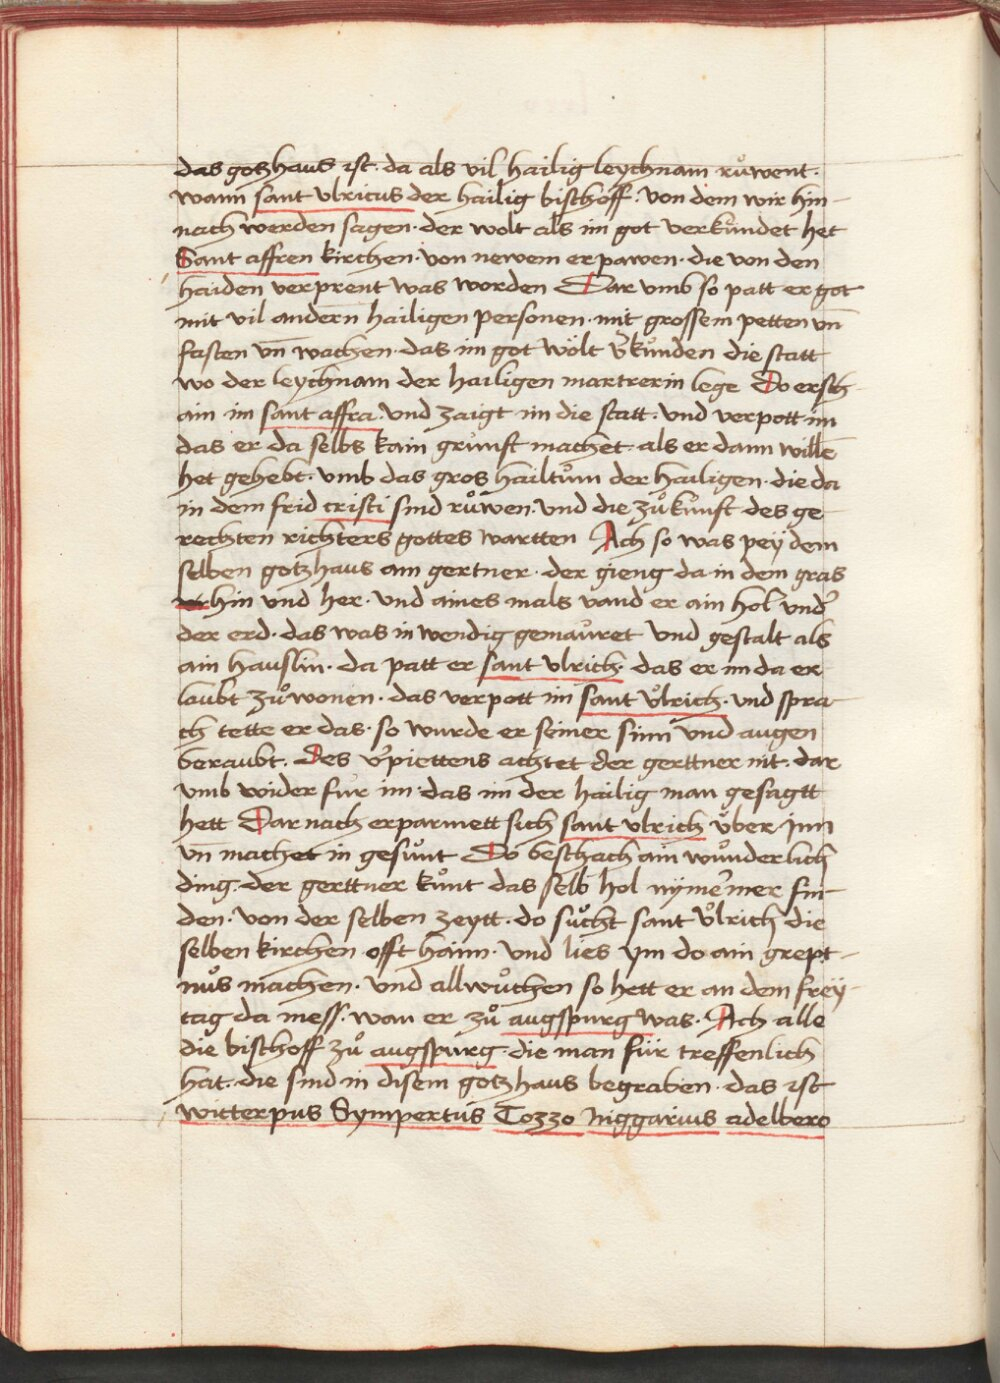 das gotzhaus ist · da als vil hailig leychnam růwent ·
wann sant vlricus der hailig bischoff · von dem wir hin-
nach werden sagen · der wolt als im got verkündet het
Sant affren kirchen · von newem erpawen · die von den
haiden verprent was worden Dar vmb so patt er got
mit vil andern hailigen personen · mit grossem petten vn̄
fasten vn̄ wachen · das im got wölt v̾künden die statt
wo der leychnam der hailigen martrerin lege Do ersch-
ain im sant affra · vnd zaigt im die statt · vnd verpott im
das er da selbs kain grunft machet · als er dann wille̅
het gehebt · vmb das gros hailtům der hailigen · die da
in dem frid cristi sind růwen · vnd die zůkunft des ge-
rechten richters gottes wartten Ach so was pey dem
selben gotzhaus am gertner · der gieng da in dem gras
hin vnd her · vnd aines mals vand er ain hol vnd̾
der erd · das was inwendig gemauret vnd gestalt als
ain hauslin · da patt er sant vlrich · das er im da er
laubt zůwonen · das verpott im sant vlrich · vnd spra-
ch tette er das · so wurde er seiner sinn vnd augen
beraubt · Des v̾piettens achtet der gerttner nit · dar
vmb wider fur im · das im der hailig man gesagtt
hett Dar nach erparmett sich sant vlrich über jnn
vn̄ machet in gesunt Do beschach ain wunderlich
ding · der gerttner kunt das selb hol nyme̅mer fin-
den · von der selben zeytt · do sucht sant vlrich die
selben kirchen offt haim · vnd lies ym do ain grept-
nůs machen · vnd allwůchen so hett er an dem frey-
tag da mess · wan er zů augspurg was · Ach alle
die bischoff zů augspurg · die man für treffenlich
hat · die sind in disem gotzhaus begraben · das ist
witterpus Sympertus Tozzo Niggarius adelbero